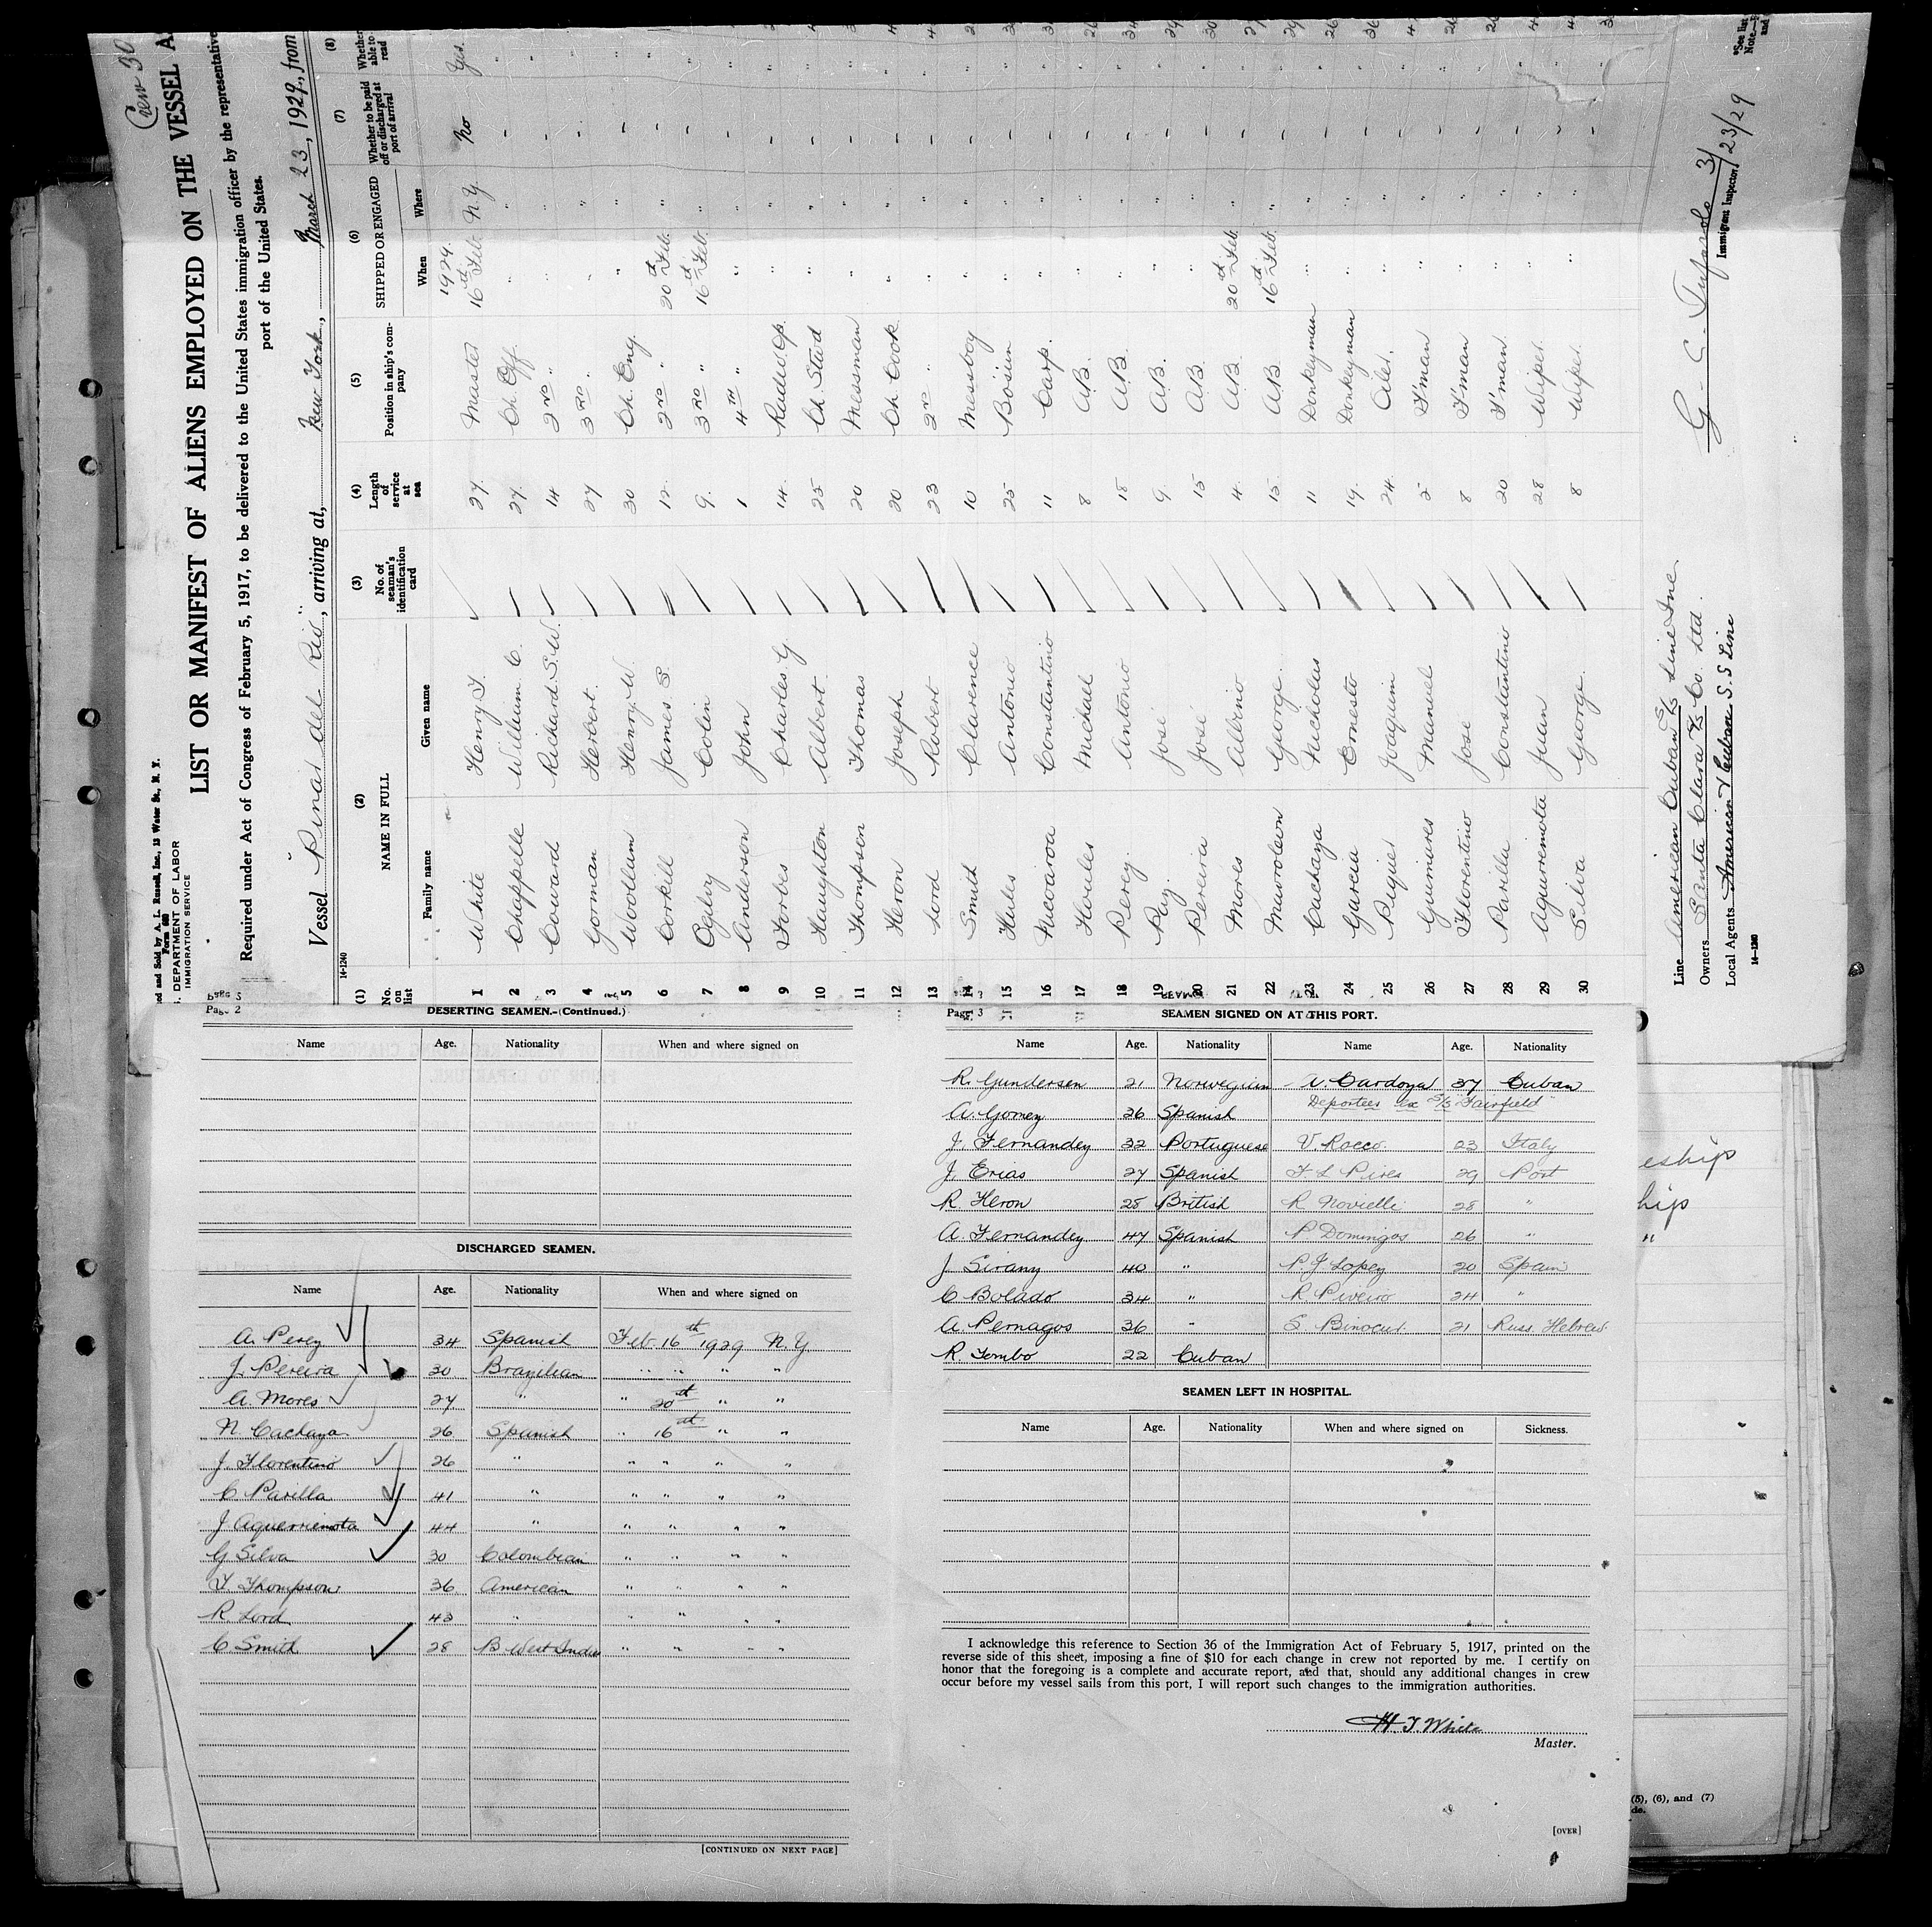 Crew 30
Form 680
U. S. DEPARTMENT OF LABOR
IMMIGRATION SERVICE
LIST OR MANIFEST OF ALIENS EMPLOYED ON THE VESSEL A
Required under Act of Congress of February 5, 1917, to be delivered to the United States immigration officer by the representative
port of the United States.
Vessel "Pinar del Rio", arriving at, New York, March 23, 1929, from
14-1240
(1) (2) (3) (4) (5) (6) (7) (8)
No. on list NAME IN FULL No. of seaman's identification card Length of service at sea Position in ship's company SHIPPED OR ENGAGED Whether to be paid off or discharged at port of arrival Whether able to read
Family name Given name When Where
1929
1 White Henry T. 27 Master 16th Feb. N.Y. No Yes.
2 Chappelle William C. 27 Ch. Off. " " " "
3 Coward Richard S.W. 14 2ND " " " " "
4 Gorman Herbert 27 3RD " " " " "
5 Woollam Henry W. 30 Ch. Eng. " " " "
6 Corkill James S. 12 2ND " 20th Feb. " " "
7 Ogilvy Colin 9 3RD " 16th Feb. " " "
8 Anderson John 1 4TH " " " " "
9 Forbes Charles G 14 Radio Op. " " " "
10 Haughton Albert 25 Ch. Stwd " " " "
11 Thompson Thomas 20 Messman " " " "
12 Heron Joseph 20 Ch. Cook " " " "
13 Lord Robert 23 2ND " " " " "
14 Smith Clarence 10 Messboy " " " "
15 Antonio 25 Bosun " " " "
16 Nicoaroa Constantino 11 Carp. " " " "
17 Houles Michael 8 A.B. " " " "
18 Perez Antonio 18 A.B. " " " "
19 José 9 A.B. " " " "
20 Pereira José 15 A.B. " " " "
21 Mores Albino 4 A.B. 20th Feb. " " "
22 George 15 A.B. 16th Feb. " " "
23 Cachaza Nicholas 11 Donkeyman " " " "
24 Garcia Ernesto 19 Donkeyman " " " "
25 Piquer Joaquim 24 Oiler " " " "
26 Guimeres Manuel 5 F'man " " " "
27 Florentino José 8 F'man " " " "
28 Parilla Constantino 20 F'man " " " "
29 Aquerremota Juan 28 Wiper " " " "
30 Silva George 8 Wiper " " " "
Line American Cuban S/S Line Inc.
Owners Santa Clara S/S Co. Ltd.
Local Agents American & Cuban S.S Line
14-1240
3/23/29
Immigrant Inspector.
*See list
Note—
and
Page 2
DESERTING SEAMEN.—(Continued.)
Name Age. Nationality When and where signed on
DISCHARGED SEAMEN.
Name Age. Nationality When and where signed on
A. Perez 34 Spanish Feb. 16th 1929 N.Y
J. Pereira 30 Brazilian " " " "
A. Mores 27 " " 20th " "
N. Cachaza 26 Spanish " 16th " "
J. Florentino 26 " " " " "
C Parilla 41 " " " " "
J Aquerriemota 44 " " " " "
G Silva 30 Colombian " " " "
T. Thompson 36 American " " " "
R. Lord 43 " " " " "
C Smith 28 B West Indies " " " "
[CONTINUED ON NEXT PAGE]
Page 3
SEAMEN SIGNED ON AT THIS PORT.
Name Age. Nationality Name Age. Nationality
R. Gundersen 21 Norwegian A. Cardoza 37 Cuban
Deportees ex S/S "Fairfield"
A. Gomez 26 Spanish
J. Fernandez 32 Portuguese V. Rocco 23 Italy
J. Erias 27 Spanish F. L Pires 29 Port
R. Heron 28 British R Novielli 28 "
A. Fernandez 47 Spanish P Domingos 26 "
J Sirany 40 " P J Lopez 20 Spain
C Bolado 34 " R Piveiro 24 "
A. Pernagos 36 " S. Binocur 21 Russ. Hebrew
R. Tombo 22 Cuban
SEAMEN LEFT IN HOSPITAL.
Name Age. Nationality When and where signed on Sickness.
I acknowledge this reference to Section 36 of the Immigration Act of February 5, 1917, printed on the
reverse side of this sheet, imposing a fine of $10 for each change in crew not reported by me. I certify on
honor that the foregoing is a complete and accurate report, and that, should any additional changes in crew
occur before my vessel sails from this port, I will report such changes to the immigration authorities.
H. T. White
Master.
[OVER]
eship
hip
"
(5), (6), and (7)
de.